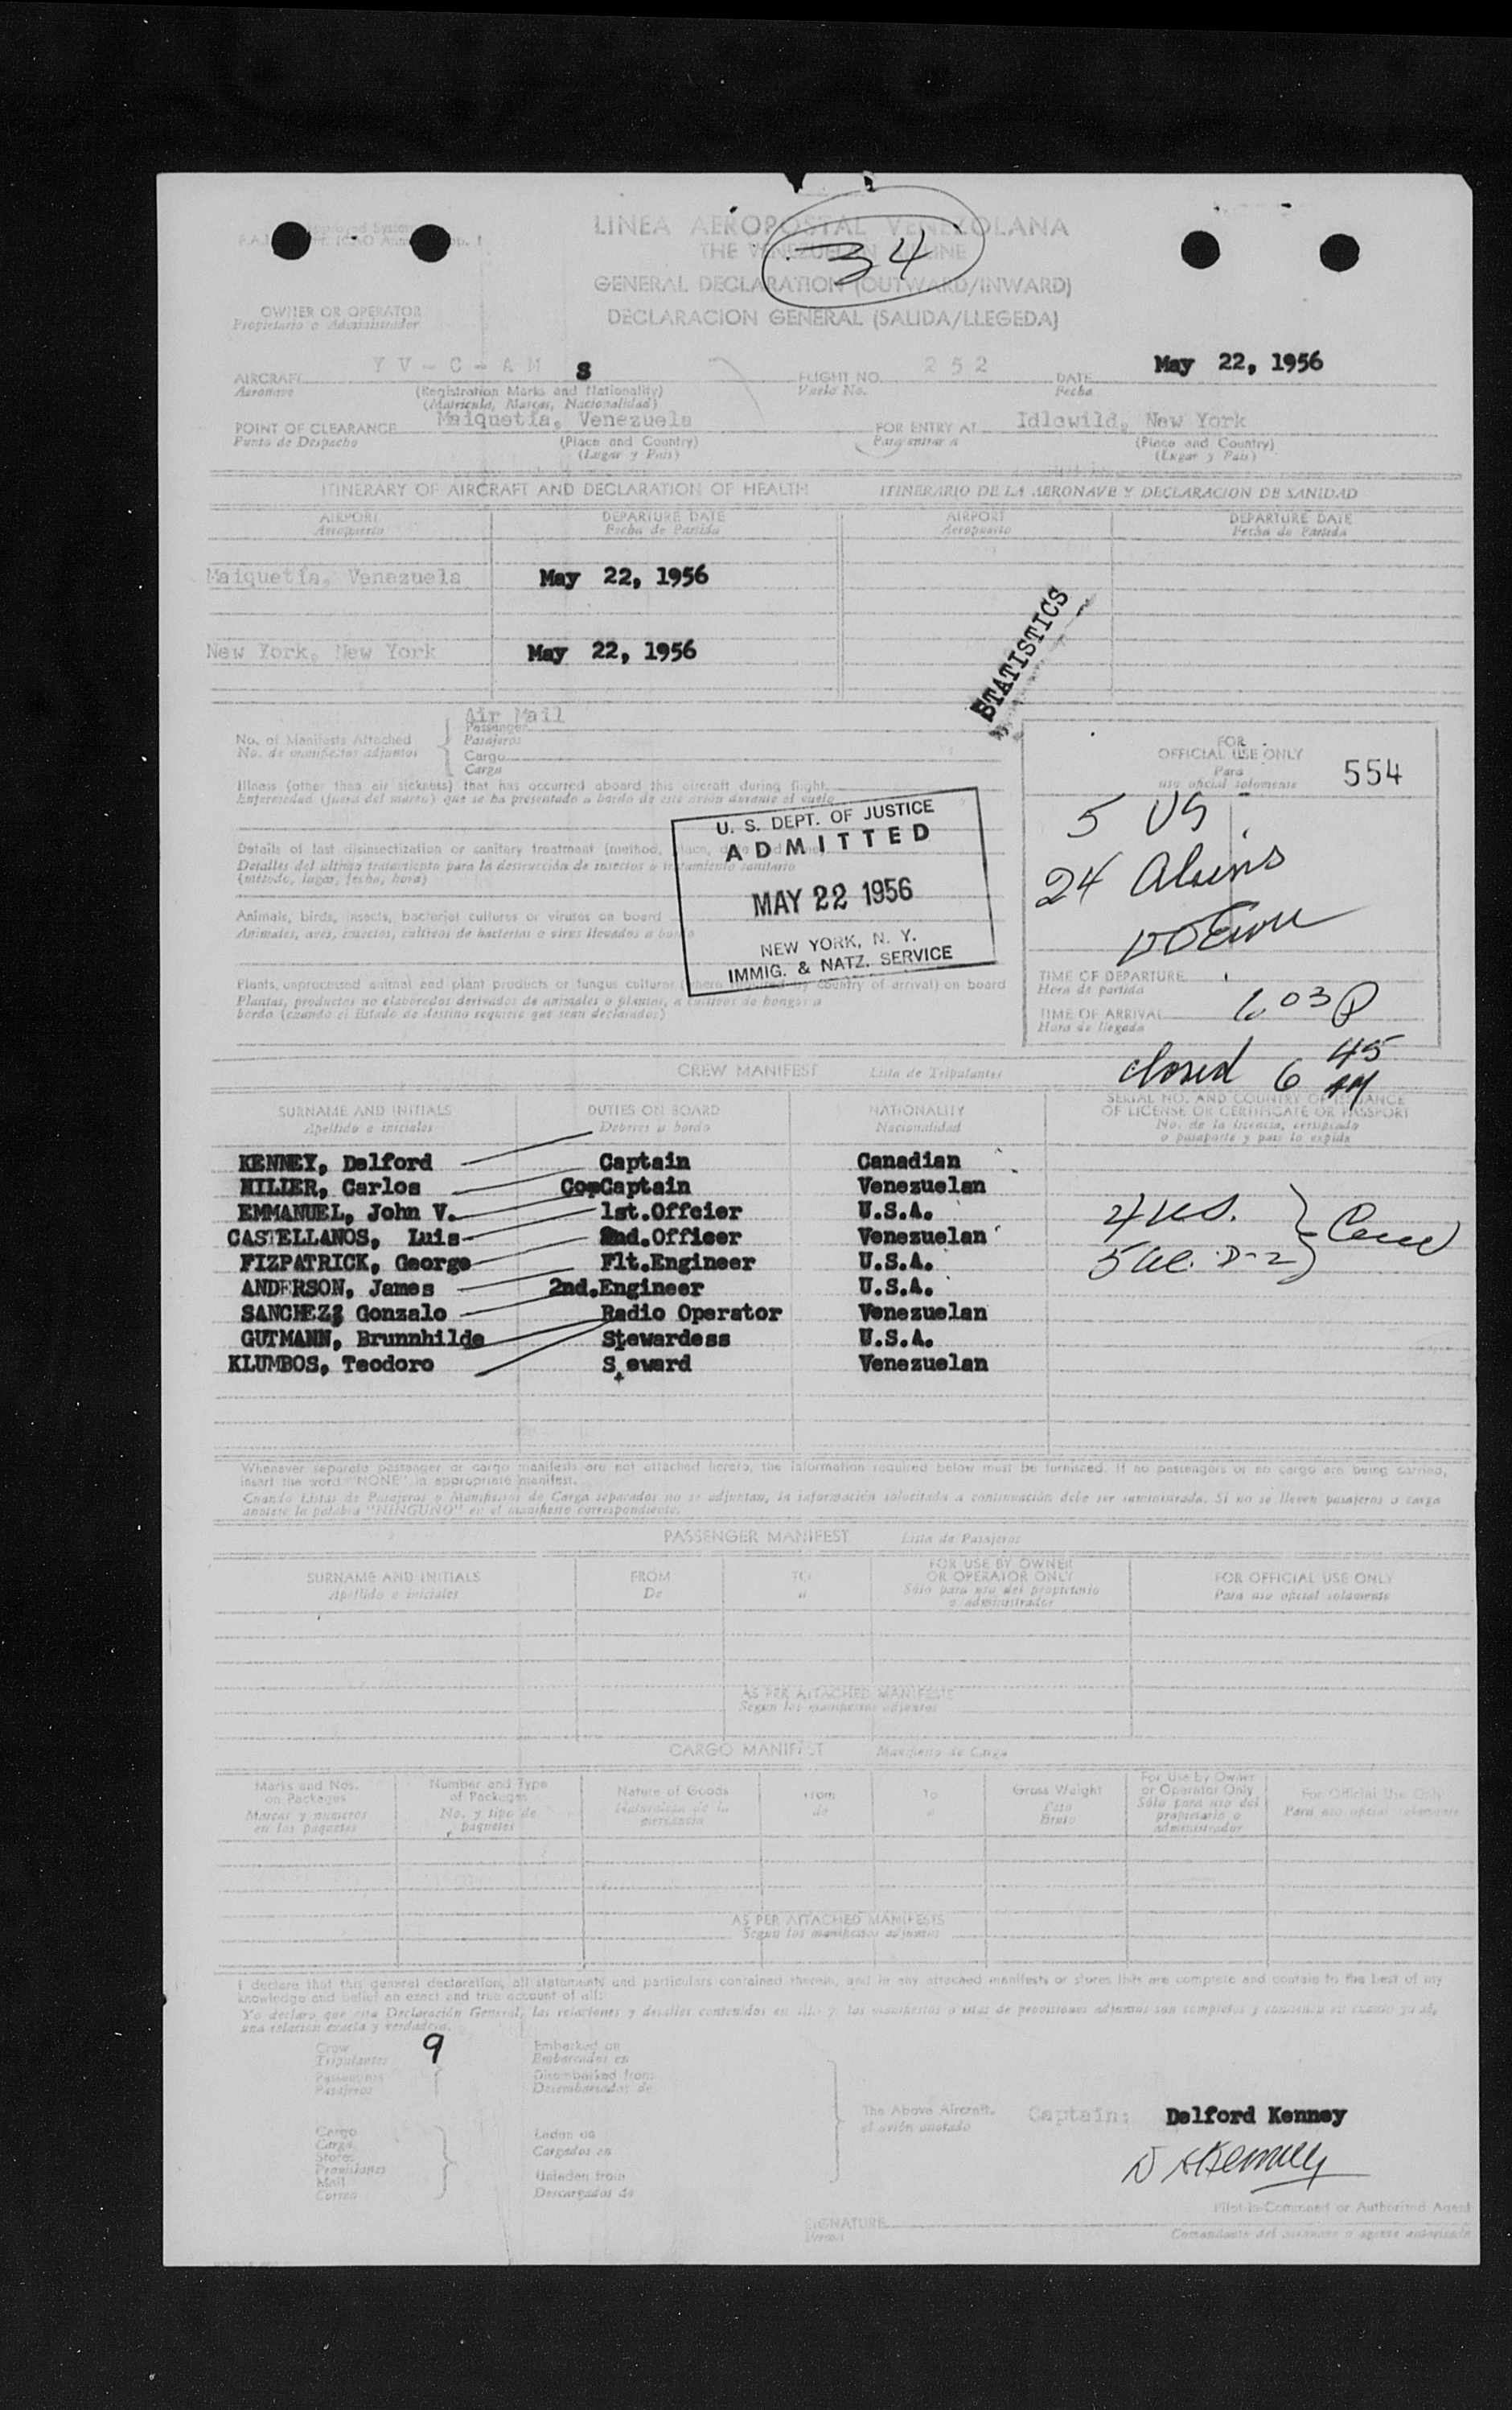 34
LINEA AEROPOSTAL VENEZOLANA
THE VENEZUELAN AIRLINE
GENERAL DECLARATION (OUTWARD/INWARD)
DECLARACION GENERAL (SALIDA/LLEGEDA)
OWNER OR OPERATOR
Propietario o Administrador
AIRCRAFT YV-C-AM S FLIGHT NO. 252 DATE May 22, 1956
Aeronave (Registration Marks and Nationality) Vuelo No. Fecha
(Matricula, Marcas, Nacionalidad)
POINT OF CLEARANCE Maiquetia, Venezuela FOR ENTRY AT Idlewild, New York
Punto de Despacho (Place and Country) Para entrar a (Place and Country)
(Lugar y Pais) (Lugar y Pais)
ITINERARY OF AIRCRAFT AND DECLARATION OF HEALTH ITINERARIO DE LA AERONAVE Y DECLARACION DE SANIDAD
AIRPORT DEPARTURE DATE AIRPORT DEPARTURE DATE
Aeropuerto Fecha de Partida Aeropuerto Fecha de Partida
Maiquetia, Venezuela May 22, 1956
New York, New York May 22, 1956
STATISTICS
Air Mail
No. of Manifests Attached Passenger
No. de manifiestos adjuntos Pasajeros
Cargo
Carga
FOR
OFFICIAL USE ONLY
Para
uso oficial solamente
554
Illness (other than air sickness) that has occurred aboard this aircraft during flight
Enfermedad (fuera del mareo) que se ha presentado a bordo de este avion durante el vuelo
5 US
24 Aliens
U. S. DEPT. OF JUSTICE
ADMITTED
MAY 22 1956
NEW YORK, N. Y.
IMMIG. & NATZ. SERVICE
Details of last disinsectization or sanitary treatment (method, place,
Detalles del ultimo tratamiento para la destrucción de insectos o tratamiento sanitario
(método, lugar, fecha, hora)
Animals, birds, insects, bacterial cultures or viruses on board
Animales, aves, insectos, cultivos de bacterias o virus llevados a bordo
Plants, unprocessed animal and plant products or fungus cultures country of arrival) on board
Plantas, productos no elaborados derivados de animales o plantas, o cultivos de hongos a
bordo (cuando el Estado de destino requiere que sean declarados)
TIME OF DEPARTURE
Hora de partida
TIME OF ARRIVAL 6 03 P
Hora de llegada
closed 6 45 AM
CREW MANIFEST Lista de Tripulantes
SURNAME AND INITIALS DUTIES ON BOARD NATIONALITY SERIAL NO. AND COUNTRY OF ISSUANCE
OF LICENSE OR CERTIFICATE OR PASSPORT
Apellido e iniciales Deberes a bordo Nacionalidad No. de la licencia, certificado
o pasaporte y pais lo expide
KENNEY, Delford Captain Canadian
HILLER, Carlos CoeCaptain Venezuelan
EMMANUEL, John V. 1st.Offcier U.S.A.
CASTELLANOS, Luis 2nd.Officer Venezuelan
FIZPATRICK, George Flt.Engineer U.S.A.
ANDERSON, James 2nd.Engineer U.S.A.
SANCHEZ, Gonzalo Radio Operator Venezuelan
GUTMANN, Brunnhilde Stewardess U.S.A.
KLUMBOS, Teodoro Steward Venezuelan
4 US.
5 al. D-2 } Crew
Whenever separate passenger or cargo manifests are not attached hereto, the information required below must be furnished. If no passengers or no cargo are being carried,
insert the word "NONE" in appropriate manifest.
Cuando Listas de Pasajeros o Manifiestos de Carga separados no se adjuntan, la información solicitada a continuación debe ser suministrada. Si no se lleven pasajeros o carga
anotese la palabra "NINGUNO" en el manifiesto correspondiente.
PASSENGER MANIFEST Lista de Pasajeros
SURNAME AND INITIALS FROM TO FOR USE BY OWNER OR OPERATOR ONLY FOR OFFICIAL USE ONLY
Apellido e iniciales De a Sólo para uso del propietario o administrador Para uso oficial solamente
AS PER ATTACHED MANIFESTS
Segun los manifiestos adjuntos
CARGO MANIFEST Manifiesto de Carga
Marks and Nos. on Packages Number and Type of Packages Nature of Goods From To Gross Weight For Use by Owner or Operator Only For Official Use Only
Marcas y numeros en los paquetes No. y tipo de paquetes Naturaleza de la mercancia de a Peso Bruto Sólo para uso del propietario o administrador Para uso oficial solamente
AS PER ATTACHED MANIFESTS
Segun los manifiestos adjuntos
I declare that this general declaration, all statements and particulars contained therein, and in any attached manifests or stores lists are complete and contain to the best of my
knowledge and belief an exact and true account of all:
Yo declaro que esta Declaración General, las relaciones y detalles contenidos en
una relación exacta y verdadera.
Crew 9 Embarked on
Tripulantes Embarcados en
Passengers Disembarked from
Pasajeros Desembarcados de
The Above Aircraft. Captain: Delford Kenney
el avión anotado
Cargo Laden on
Carga Cargados en
Stores
Provisiones Unladen from
Mail
Correo Descargados de
D Kenney
Pilot-in-Command or Authorized Agent
SIGNATURE
Firma Comandante del aeronave o agente autorizado